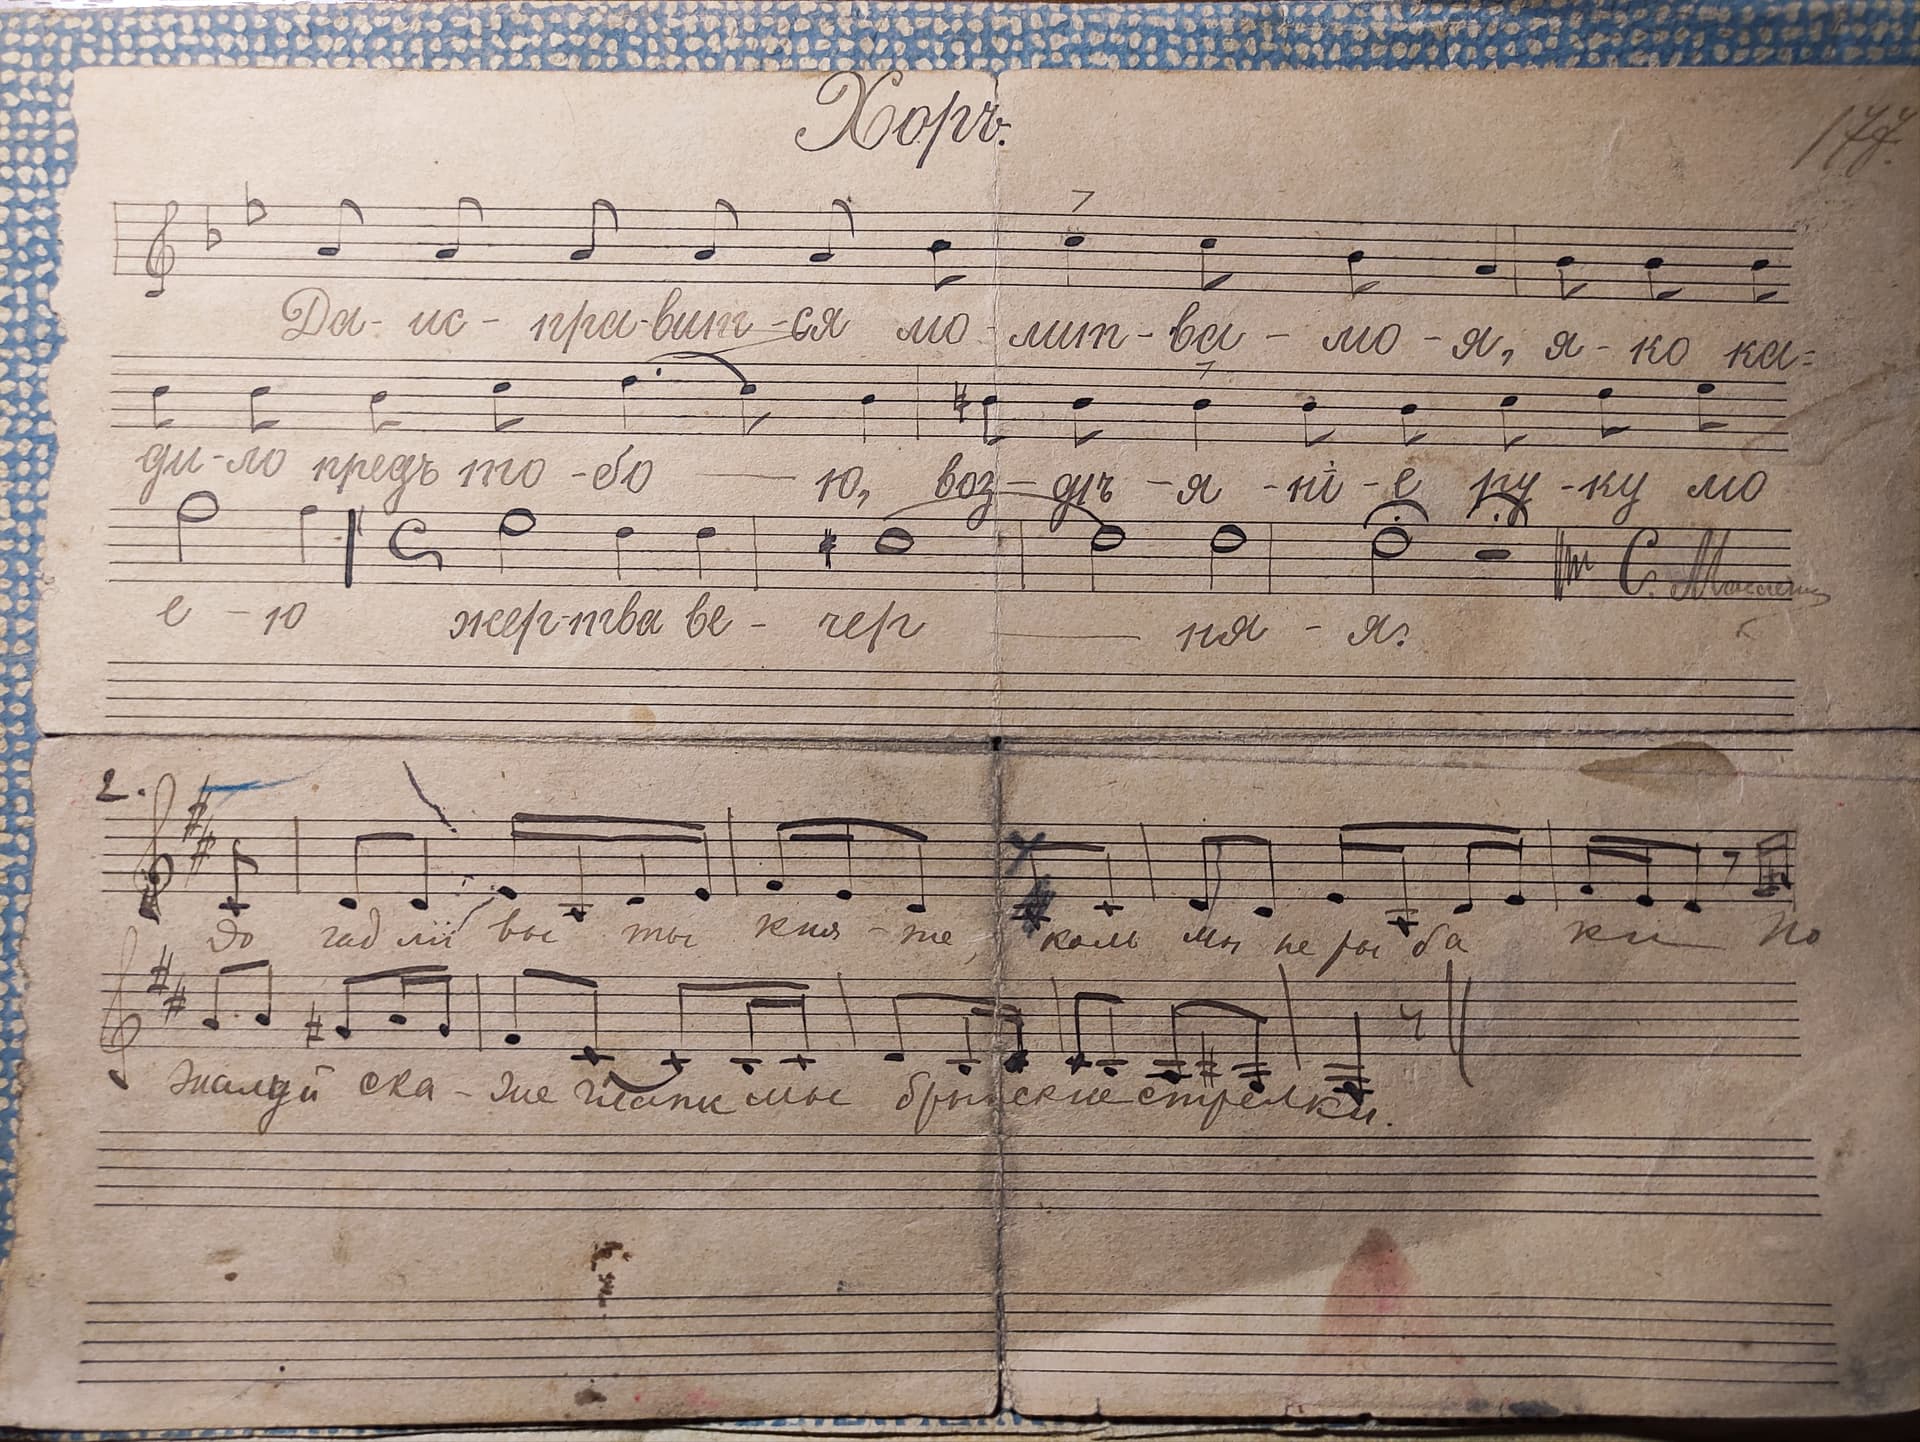 Хоръ.
177.
Да- ис- пра-вит-ся мо-лит-ва - мо-я, я-ко ка=
ди-ло предъ то-бо — ю, воз-дѣ-я-ні-е ру-ку мо
е-ю жер-тва ве-чер — ня-я.
С.
2.
До гад ли вы ты кня-же, коль мы не ры ба ки — По
жалуй ска-же мы стрелки.